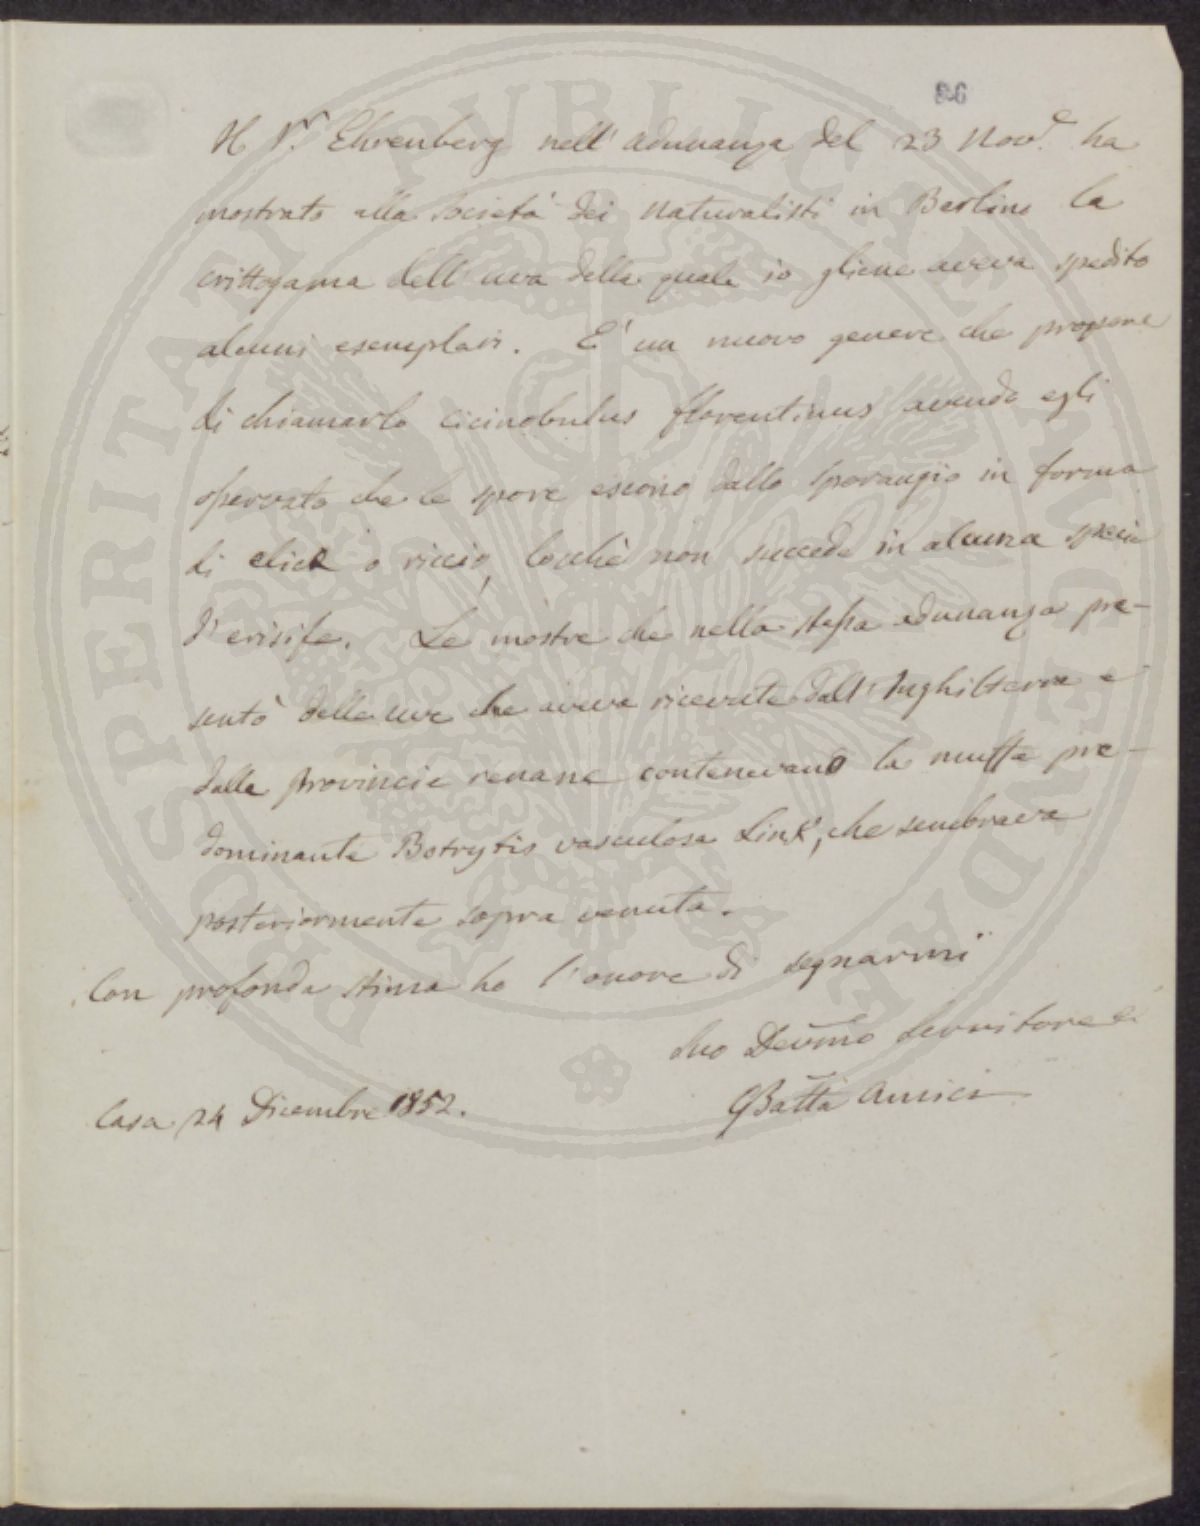 86
Il Sr. Ehrenberg nell'adunanza del 23 Nove. ha
mostrato alla Società dei naturalisti in Berlino la
crittogama dell'uva della quale io gliene aveva spedito
alcuni esemplari. E' un nuovo genere che propone
di chiamarlo cicinobulus florentinus avendo egli
osservato che le spore escono dallo sporangio in forma
di elice o riccio, locchè non succede in alcuna specie
d'erisife. Le mostre che nella stessa adunanza pre-
sentò delle uve che aveva ricevute dall'Inghilterra e
dalle provincie renane contenevano la muffa pre-
dominante Botrytis vasculosa Link, che sembrava
posteriormente sopra venuta.
Con profonda stima ho l'onore di segnarmi
Suo Devmo Servitore
GBatta Amici
Casa 24 Dicembre 1852.
PROSPERITATI PUBLICAE AUGENDAE